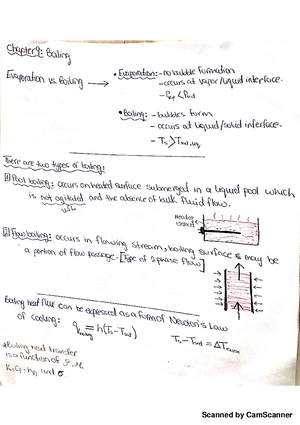 Chapter 9: Boiling
Evaporation vs. Boiling → • Evaporation: - no bubble formation
- occurs at vapor/liquid interface.
- Pvap < Psat
• Boiling: - bubbles form.
- occurs at liquid/solid interface.
- Ts > Tsat, liq
There are two types of boiling:
1) Pool boiling: occurs on heated surface submerged in a liquid pool which
is not agitated and the absence of bulk fluid flow.
Heating
element
2) Flow boiling: occurs in flowing stream, boiling surface is may be
a portion of flow passage. [Type of 2 phase flow]
Boiling heat flux can be expressed as a form of Newton's Law
of cooling: q boiling = h(Ts - Tsat)
Ts - Tsat = ΔT excess
* Boiling heat transfer
is a function of ρ, μ,
k, Cp, hfg and σ
Scanned by CamScanner